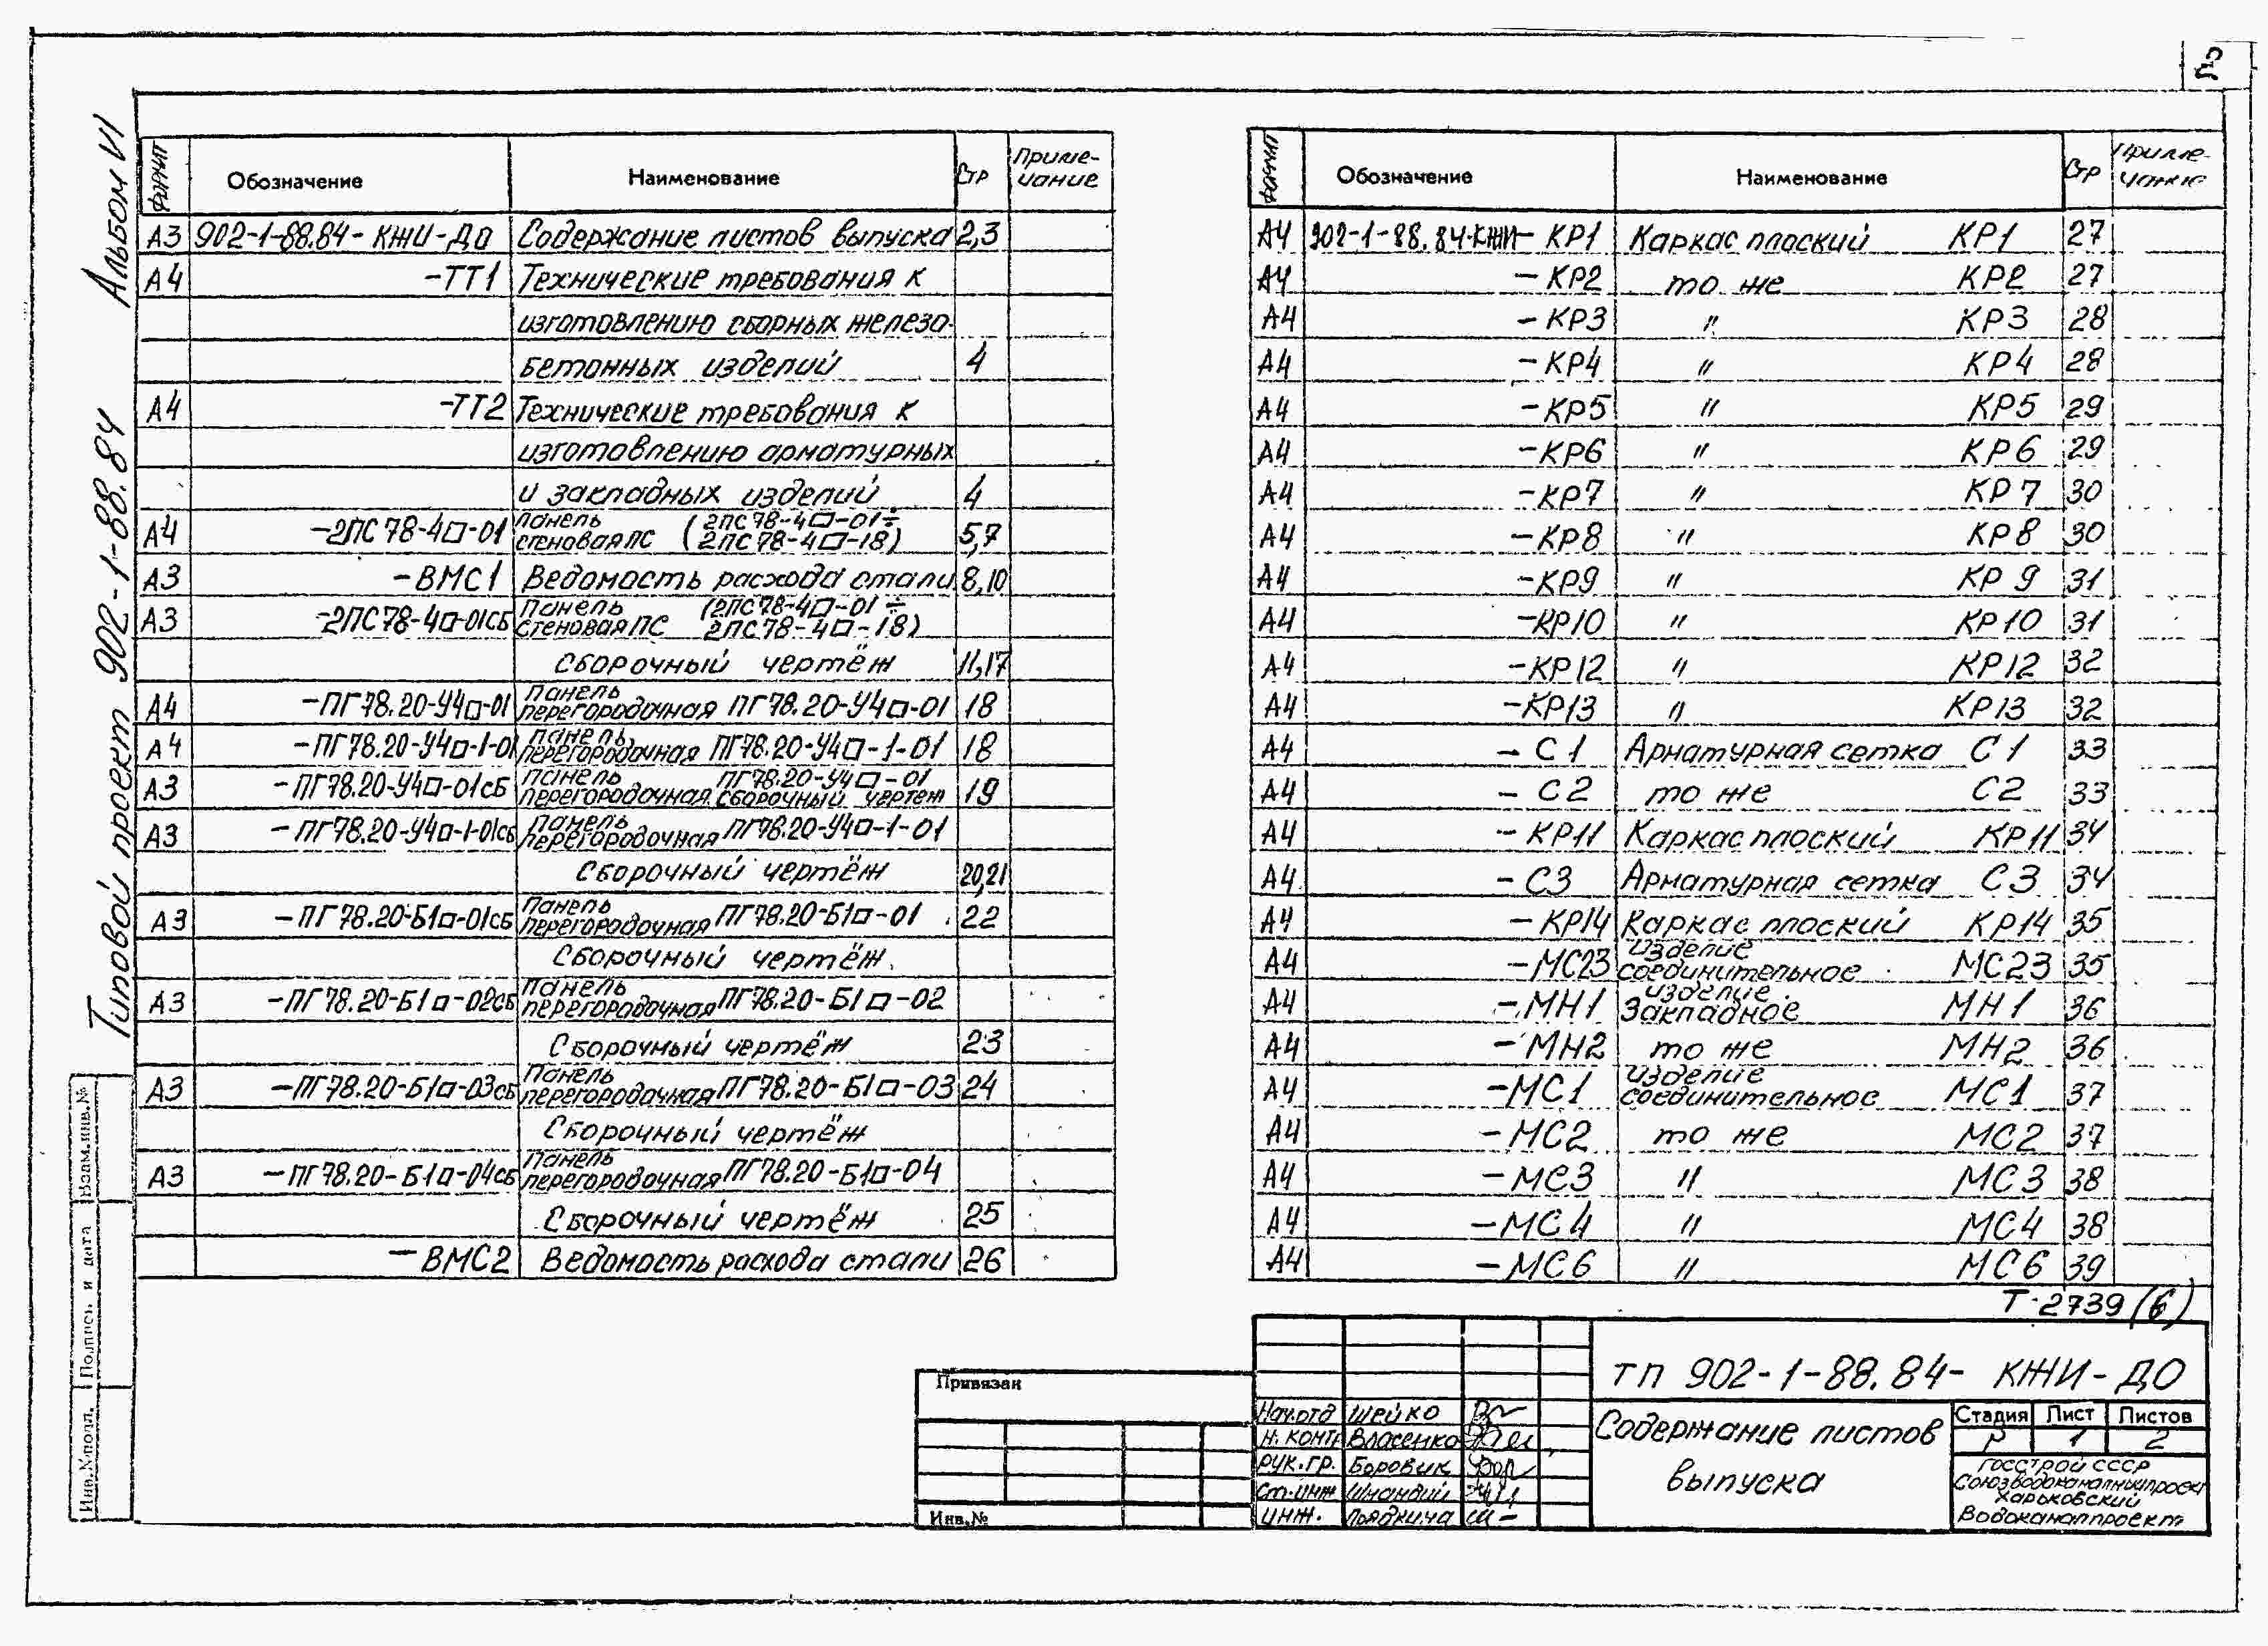 2
Альбом VI
Типовой проект 902-1-88.84
Формат Обозначение Наименование Стр Примечание
А3 902-1-88.84-КЖИ-ДО Содержание листов выпуска 2,3
А4 -ТТ1 Технические требования к
изготовлению сборных железо-
бетонных изделий 4
А4 -ТТ2 Технические требования к
изготовлению арматурных
и закладных изделий 4
А4 -2ПС78-4□-01 Панель стеновая ПС (2ПС78-4□-01÷ 2ПС78-4□-18) 5,7
А3 -ВМС1 Ведомость расхода стали 8,10
А3 -2ПС78-4□-01СБ Панель стеновая ПС (2ПС78-4□-01÷ 2ПС78-4□-18)
Сборочный чертёж 11,17
А4 -ПГ78.20-У4□-01 Панель перегородочная ПГ78.20-У4□-01 18
А4 -ПГ78.20-У4□-1-01 Панель перегородочная ПГ78.20-У4□-1-01 18
А3 -ПГ78.20-У4□-01СБ Панель перегородочная ПГ78.20-У4□-01 Сборочный чертеж 19
А3 -ПГ78.20-У4□-1-01СБ Панель перегородочная ПГ78.20-У4□-1-01
Сборочный чертёж 20,21
А3 -ПГ78.20-Б1□-01СБ Панель перегородочная ПГ78.20-Б1□-01 22
Сборочный чертёж
А3 -ПГ78.20-Б1□-02СБ Панель перегородочная ПГ78.20-Б1□-02
Сборочный чертёж 23
А3 -ПГ78.20-Б1□-03СБ Панель перегородочная ПГ78.20-Б1□-03 24
Сборочный чертёж
А3 -ПГ78.20-Б1□-04СБ Панель перегородочная ПГ78.20-Б1□-04
Сборочный чертёж 25
-ВМС2 Ведомость расхода стали 26
Формат Обозначение Наименование Стр Примечание
А4 902-1-88.84-КЖИ-КР1 Каркас плоский КР1 27
А4 -КР2 то же КР2 27
А4 -КР3 " КР3 28
А4 -КР4 " КР4 28
А4 -КР5 " КР5 29
А4 -КР6 " КР6 29
А4 -КР7 " КР7 30
А4 -КР8 " КР8 30
А4 -КР9 " КР9 31
А4 -КР10 " КР10 31
А4 -КР12 " КР12 32
А4 -КР13 " КР13 32
А4 -С1 Арматурная сетка С1 33
А4 -С2 то же С2 33
А4 -КР11 Каркас плоский КР11 34
А4 -С3 Арматурная сетка С3 34
А4 -КР14 Каркас плоский КР14 35
А4 -МС23 Изделие соединительное МС23 35
А4 -МН1 Изделие закладное МН1 36
А4 -МН2 то же МН2 36
А4 -МС1 Изделие соединительное МС1 37
А4 -МС2 то же МС2 37
А4 -МС3 " МС3 38
А4 -МС4 " МС4 38
А4 -МС6 " МС6 39
Т-2739 (6)
Взам.инв.№
Подпись и дата
Инв.№подл.
Привязан
Инв.№
ТП 902-1-88.84-КЖИ-ДО
Нач.отд Шейко
Н. контр Власенко
Рук.гр. Боровик
Ст.инж
Инж.
Содержание листов
выпуска
Стадия Лист Листов
Р 1 2
Госстрой СССР
Союзводоканалниипроект
Харьковский
Водоканалпроект